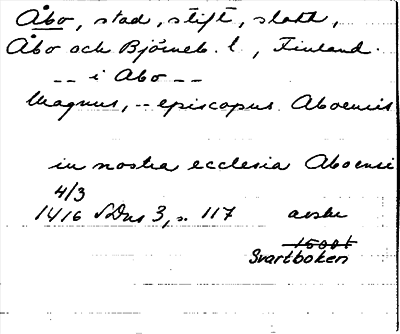 Åbo, stad, stift, slott,
Åbo och Björneb. l., Finland.
-- i Abo --
Magnus, -- episcopus Aboensis
in nostra ecclesia Aboensi
4/3
1416 SDns 3, s. 117 avskr
1500t
Svartboken